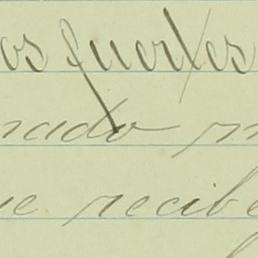 os fuertes
nado m
ue recibe